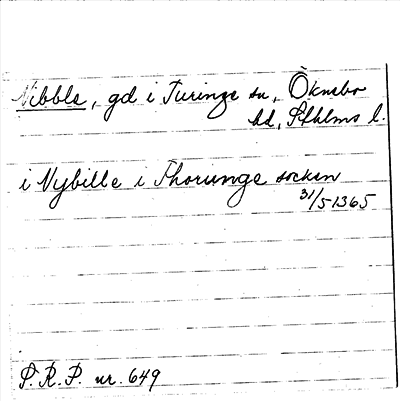 Nibble, gd i Turinge sn, Öknebo
hd, Sthlms l.
i Nybille i Thorunge socken
31/5 1365
S.R.P. nr. 649